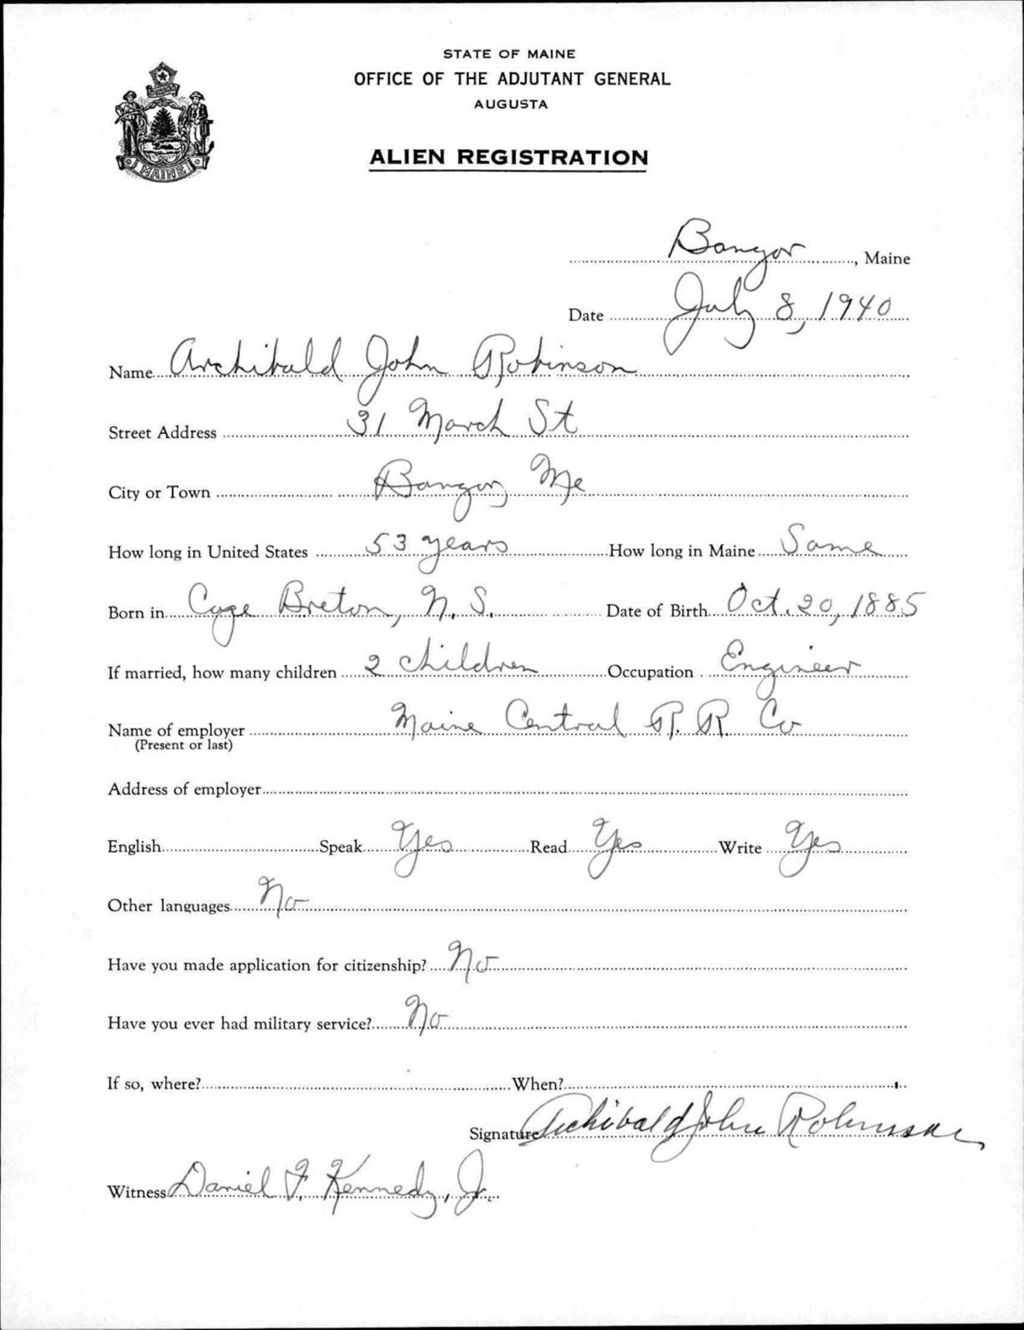 STATE OF MAINE
OFFICE OF THE ADJUTANT GENERAL
AUGUSTA
ALIEN REGISTRATION
MAINE
Bangor, Maine
Date July 8, 1940
Name Archibald John Robinson
Street Address 31 March St
City or Town Bangor, Me
How long in United States 53 years How long in Maine Same
Born in Cape Breton, N. S. Date of Birth Oct. 20, 1885
If married, how many children 2 children Occupation Engineer
Name of employer Maine Central R. R. Co
(Present or last)
Address of employer
English Speak Yes Read Yes Write Yes
Other languages No
Have you made application for citizenship? No
Have you ever had military service? No
If so, where? When?
Signature Archibald John Robinson
Witness Daniel F. Kennedy, Jr.